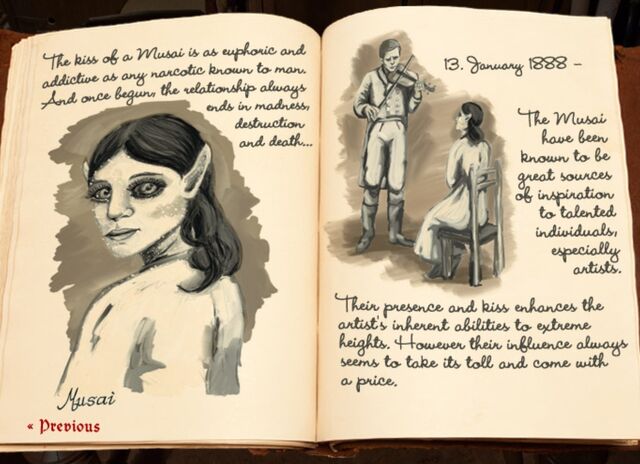 The kiss of a Musai is as euphoric and
addictive as any narcotic known to man.
And once begun, the relationship always
ends in madness,
destruction
and death...
Musai
« Previous
13. January 1888 -
The Musai
have been
known to be
great sources
of inspiration
to talented
individuals,
especially
artists.
Their presence and kiss enhances the
artist's inherent abilities to extreme
heights. However their influence always
seems to take its toll and come with
a price.